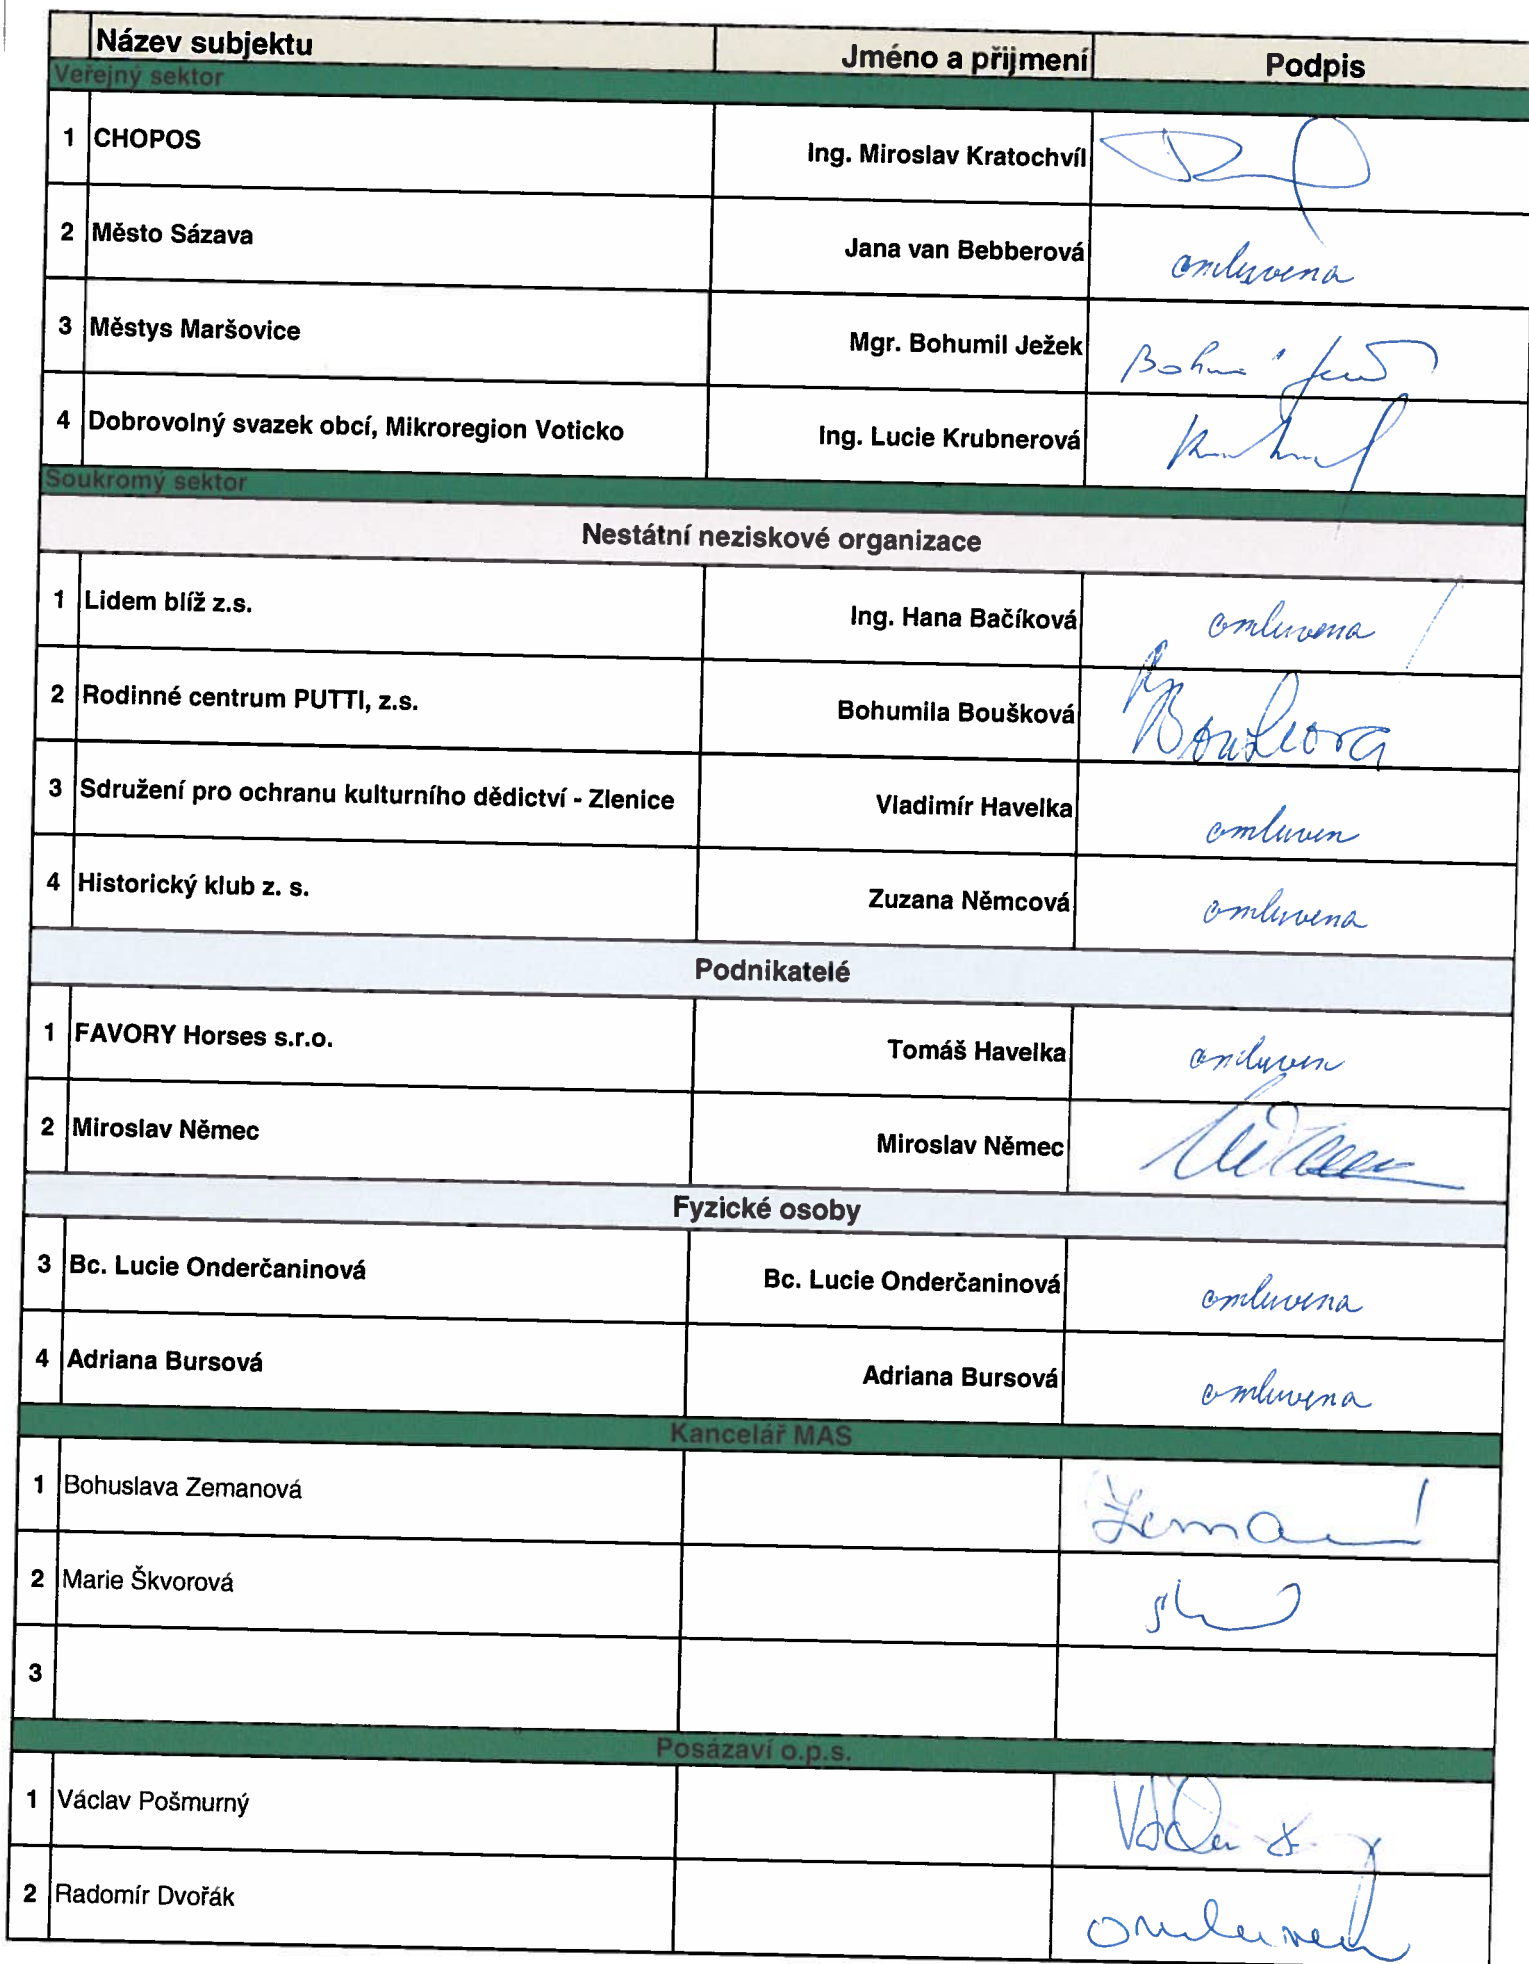 Název subjektu Jméno a přijmení Podpis
Veřejný sektor
1 CHOPOS Ing. Miroslav Kratochvíl
2 Město Sázava Jana van Bebberová omluvena
3 Městys Maršovice Mgr. Bohumil Ježek
4 Dobrovolný svazek obcí, Mikroregion Voticko Ing. Lucie Krubnerová
Soukromý sektor
Nestátní neziskové organizace
1 Lidem blíž z.s. Ing. Hana Bačíková omluvena
2 Rodinné centrum PUTTI, z.s. Bohumila Boušková Boušková
3 Sdružení pro ochranu kulturního dědictví - Zlenice Vladimír Havelka omluven
4 Historický klub z. s. Zuzana Němcová omluvena
Podnikatelé
1 FAVORY Horses s.r.o. Tomáš Havelka omluven
2 Miroslav Němec Miroslav Němec
Fyzické osoby
3 Bc. Lucie Onderčaninová Bc. Lucie Onderčaninová omluvena
4 Adriana Bursová Adriana Bursová omluvena
Kancelář MAS
1 Bohuslava Zemanová
2 Marie Škvorová
3
Posázaví o.p.s.
1 Václav Pošmurný
2 Radomír Dvořák omluven